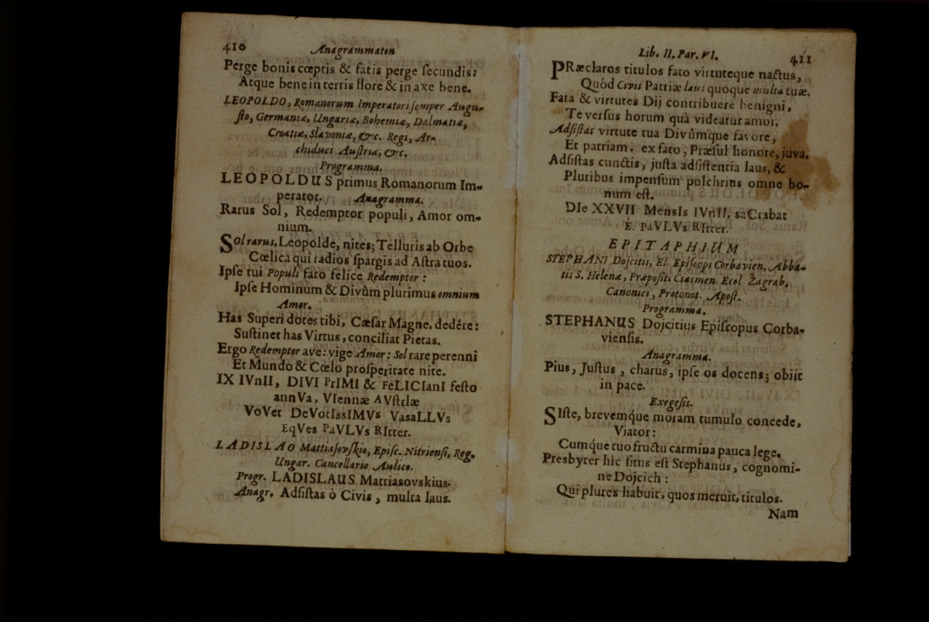 410 Anagrammaton
Perge bonis cœptis & fatis perge secundis:
Atque bene in terris flore & in axe bene.
LEOPOLDO, Romanorum Imperatori semper Augu-
sto, Germaniæ, Ungariæ, Bohemiæ, Dalmatiæ,
Croatiæ, Slavoniæ, &c. Regi, Ar-
chiduci Austriæ, &c.
Programma.
LEOPOLDUS primus Romanorum Im-
perator. Anagramma.
Rarus Sol, Redemptor populi, Amor om-
nium.
Sol rarus, Leopolde, nites; Telluris ab Orbe
Cœlica qui radios spargis ad Astra tuos.
Ipse tui Populi fato felice Redemptor:
Ipse Hominum & Divûm plurimus omnium
Amor.
Has Superi dotes tibi, Cæsar Magne, dedêre:
Sustinet has Virtus, conciliat Pietas.
Ergo Redemptor ave: vige Amor: Sol rare perenni
Et Mundo & Cœlo prosperitate nite.
IX IVnII, DIVI PrIMI & FeLICIanI festo
annVa, VIennæ AVstrIæ
VoVet DeVotIssIMVs VasaLLVs
EqVes PaVLVs RItter.
LADISLAO Mattiasovskio, Episc. Nitriensi, Reg.
Ungar. Cancellario Aulico.
Progr. LADISLAUS Mattiasovskius.
Anagr. Adsistas ò Civis, multa laus.
Lib. II. Par. VI. 411
PRæclaros titulos fato virtuteque nactus,
Quòd Civis Patriæ laus quoque multa tuæ.
Fata & virtutes Dij contribuere benigni,
Te versus horum quà videatur amor.
Adsistas virtute tua Divûmque favore,
Et patriam, ex fato, Præsul honore, juva.
Adsistas cunctis, justa adsistentia laus, &
Pluribus impensum pulchrius omne bo-
num est.
DIe XXVII MensIs IVnII, saCrabat
E. PaVLVs RItter.
EPITAPHIUM
STEPHANI Dojcitii, El. Episcopi Corbavien. Abba-
tis S. Helenæ, Præpositi Ciasmen. Eccl. Zagrab.
Canonici, Protonot. Apost.
Programma.
STEPHANUS Dojcitius Episcopus Corba-
viensis.
Anagramma.
Pius, Justus, charus, ipse os docens; obiit
in pace.
Exegesis.
SIste, brevemque moram tumulo concede,
Viator:
Cumque tuo fructu carmina pauca lege.
Presbyter hîc situs est Stephanus, cognomi-
ne Dojcich:
Qui plures habuit, quos meruit, titulos.
Nam